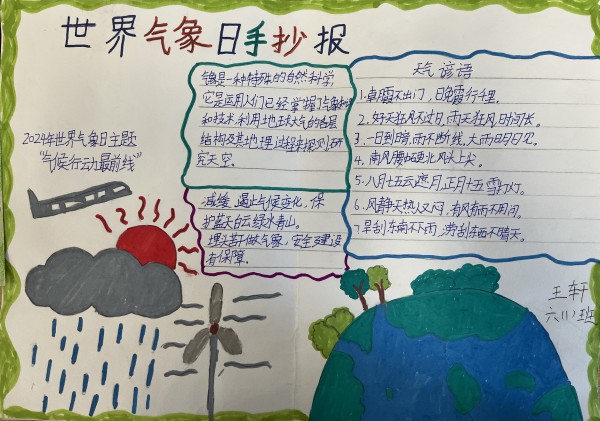 世界气象日手抄报
2024年世界气象日主题
"气候行动最前线"
气象是一种特殊的自然科学,
它是运用人们已经掌握了气象知识
和技术,利用地球大气的各层
结构及其地理过程来探测研
究天空.
减缓、遏止气候变化,保
护蓝天白云,绿水青山。
埋头苦干做气象,安全建设
有保障.
天气谚语
1.早霞不出门,日晚霞行千里.
2.好天狂风不过日,雨天狂风时间长。
3.一日到暗,雨不断线,大雨明日见。
4.南风腰中硬,北风头上尖。
5.八月十五云遮月,正月十五雪打灯。
6.风静天热人又闷,有风有雨不用问。
7.早刮东南不下雨,涝刮东西不晴天。
王轩
六(1)班